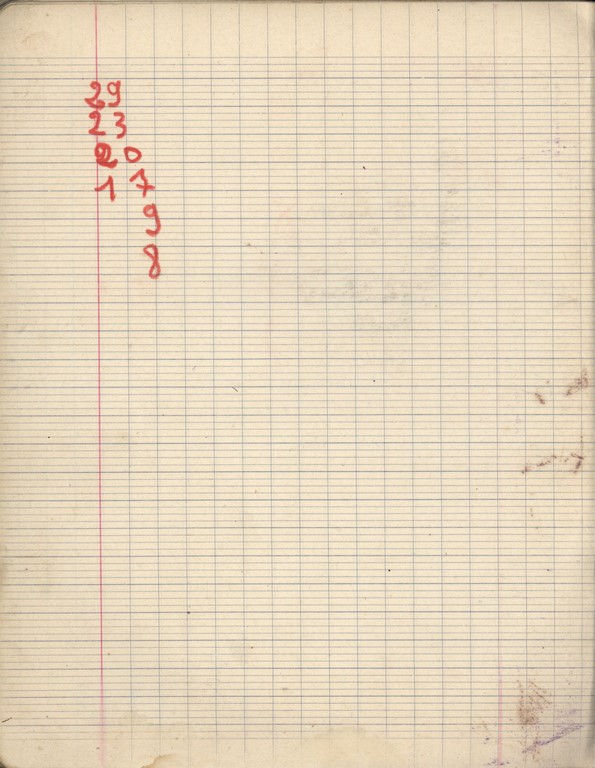 29
23
20
17
9
8